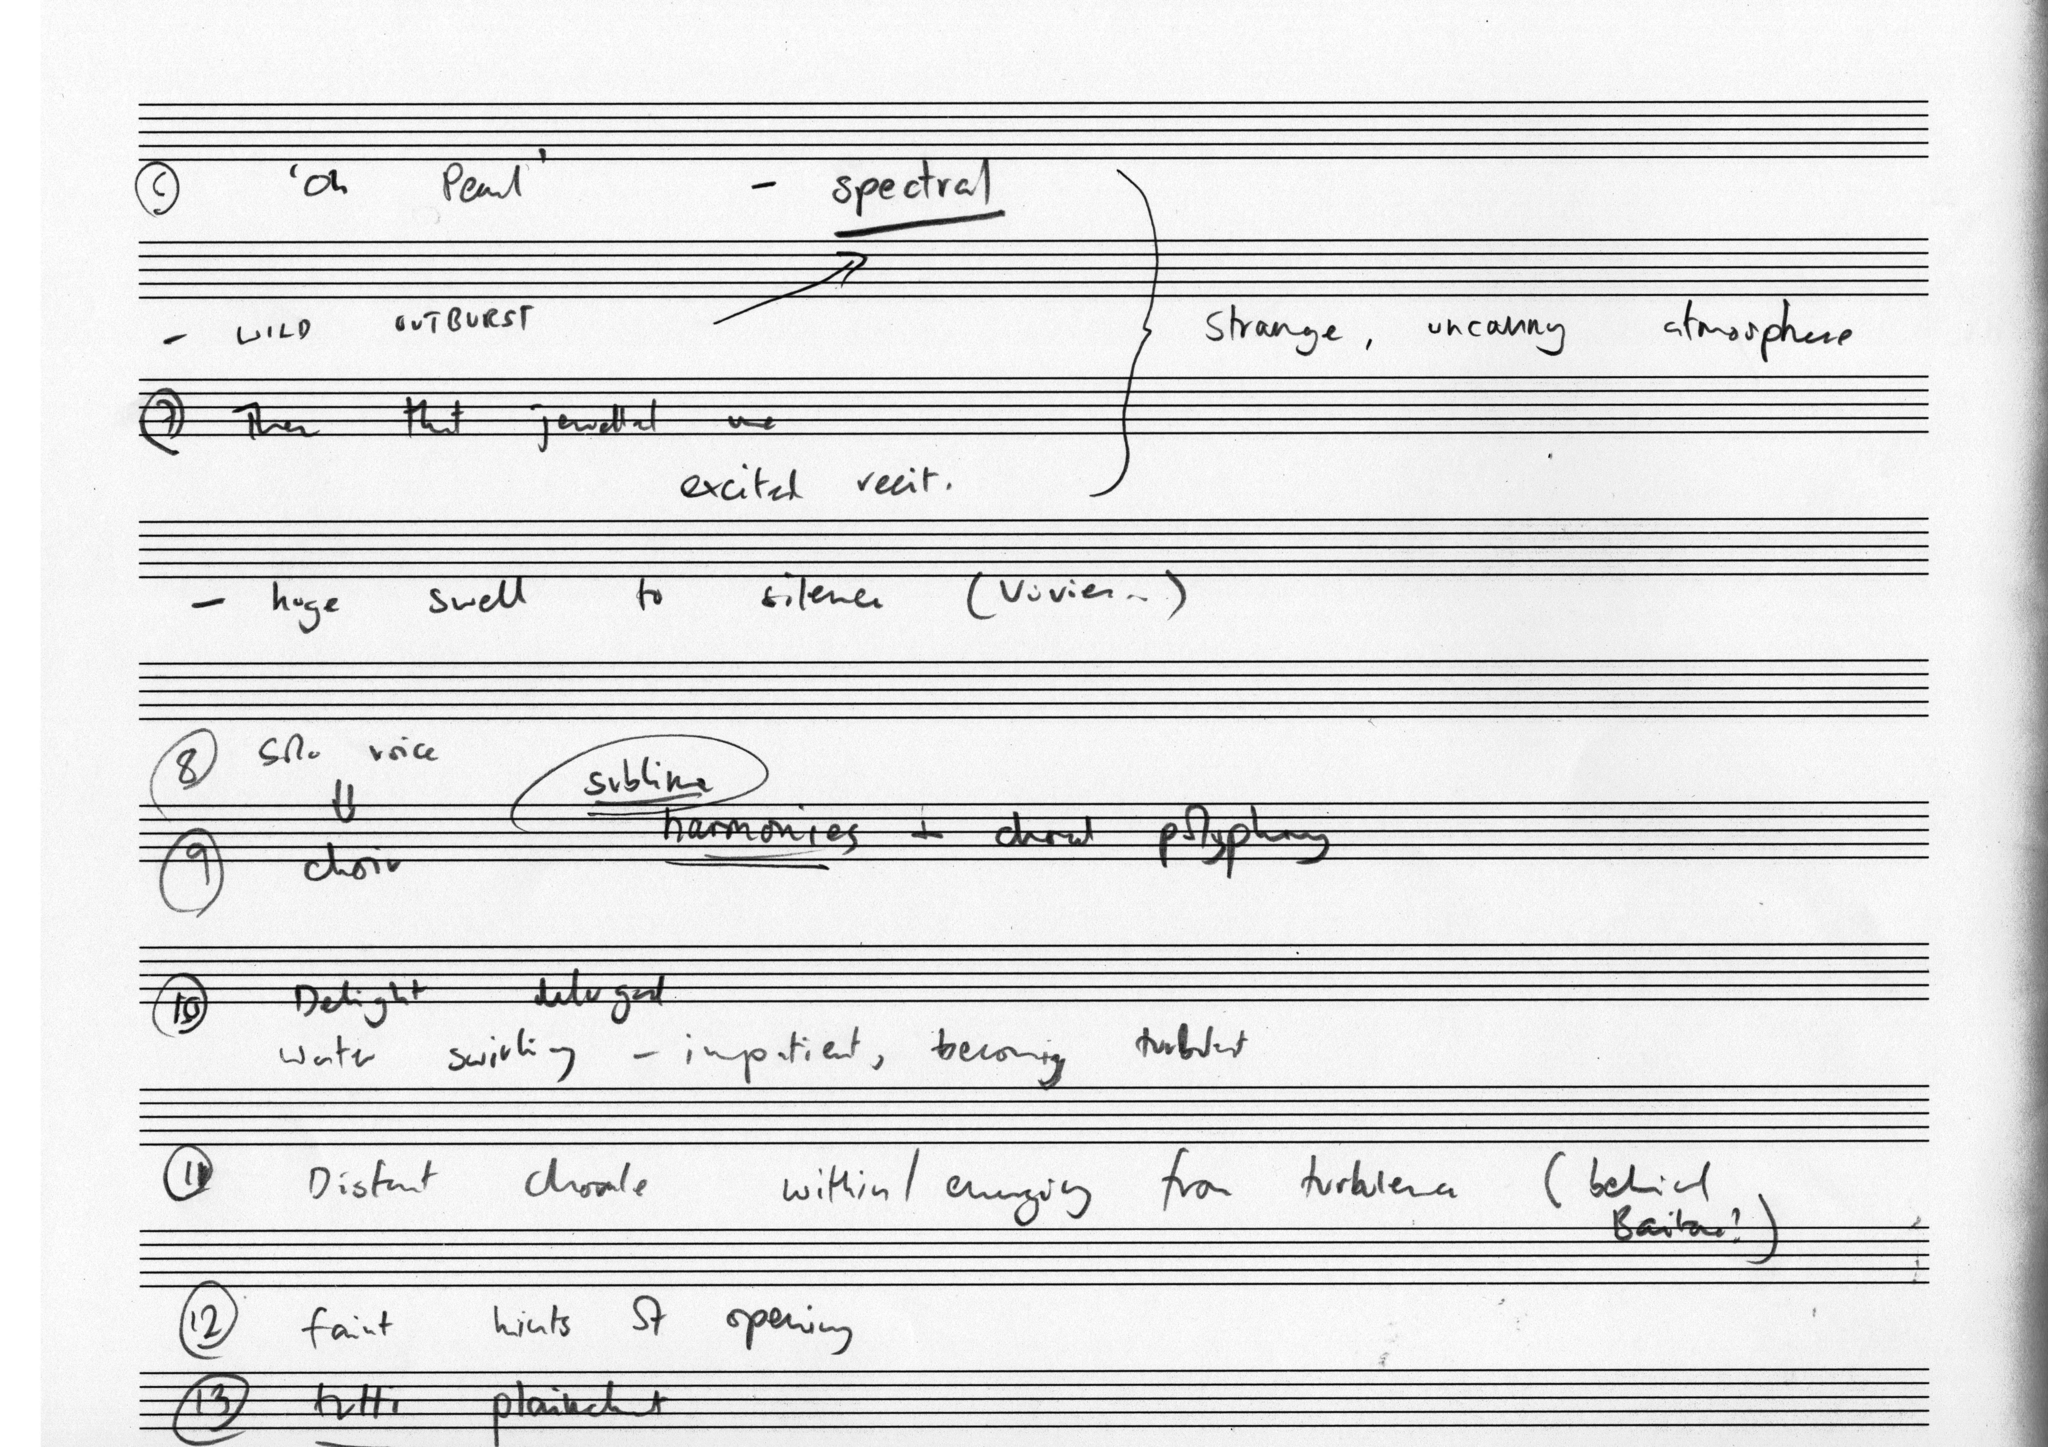 6 'Oh Pearl' - spectral
- WILD OUTBURST
Strange, uncanny atmosphere
7 Then that jewelled one
excited recit.
- huge swell to silence (Vivier...)
8 Solo voice
sublime
harmonies + choral polyphony
9 choir
10 Delight deluged
Water swirling - impatient, becoming turbulent
11 Distant chorale within/emerging from turbulence (behind
Baritone?)
12 faint hints of opening
13 tutti plainchant